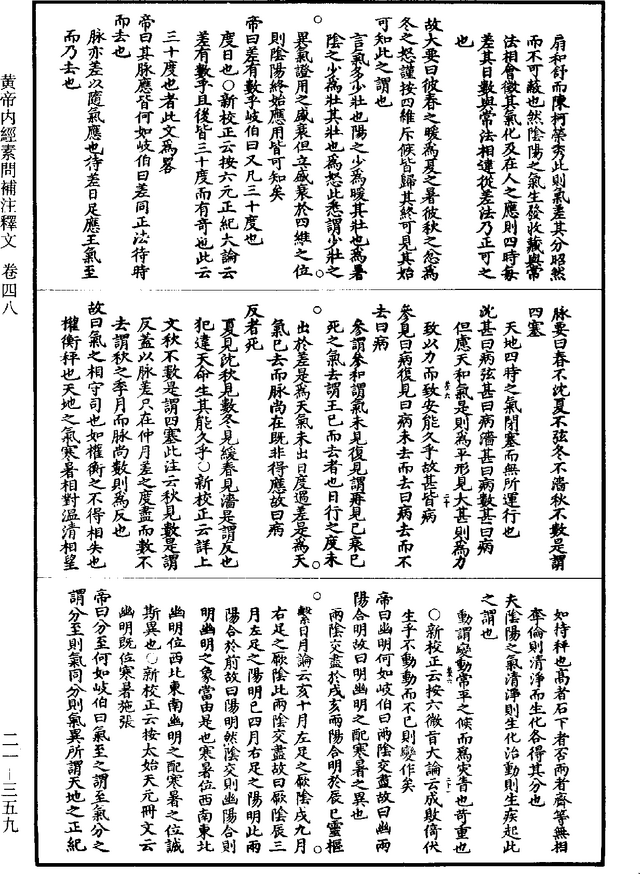 扇和舒而陳柯榮秀此則氣差其分昭然
而不可蔽也然陰陽之氣生發收藏與常
法相會徵其氣化及在人之應則四時每
差其日數與常法相違從差法乃正可之
也
故大要曰彼春之暖為夏之暑彼秋之忿為
冬之怒謹按四維斥候皆歸其終可見其始
可知此之謂也
言氣多少壯也陽之少為暖其壯也為暑
陰之少為壯其壯也為怒此悉謂少壯之
異氣證用之盛衰但立盛衰於四維之位
則陰陽終始應用皆可知矣
帝曰差有數乎岐伯曰又凡三十度也
度日也○新校正云按六元正紀大論云
差有數乎且後皆三十度而有奇也此云
三十度也者此文為畧
帝曰其脉應皆何如岐伯曰差同正法待時
而去也
脉亦差以隨氣應也待差日足應王氣至
而乃去也
脉要曰春不沈夏不弦冬不濇秋不數是謂
四塞
天地四時之氣閉塞而無所運行也
沈甚曰病弦甚曰病濇甚曰病數甚曰病
但應天和氣是則為平形見大甚則為力
致以力而致安能久乎故甚皆病
參見曰病復見曰病未去而去曰病去而不
去曰病
參謂參和謂氣未見復見謂再見已衰已
死之氣去謂王已而去者也日行之度未
出於差是為天氣未出日度過差是為天
氣已去而脉尚在既非得應故曰病
反者死
夏見沈秋見數冬見緩春見濇是謂反也
犯違天命生其能久乎○新校正云詳上
文秋不數是謂四塞此注云秋見數是謂
反蓋以脉差只在仲月差之度盡而數不
去謂秋之季月而脉尚數則為反也
故曰氣之相守司也如權衡之不得相失也
權衡秤也天地之氣寒暑相對溫清相望
如持秤也高者石下者否兩者齊等無相
奪倫則清淨而生化各得其分也
夫陰陽之氣清淨則生化治動則生疾起此
之謂也
動謂變動常平之候而為災眚也苛重也
○新校正云按六微旨大論云成敗倚伏
生乎不動動而不已則變作矣
帝曰幽明何如岐伯曰兩陰交盡故曰幽兩
陽合明故曰明幽明之配寒暑之異也
兩陰交盡於戌亥兩陽合明於辰巳靈樞
繫日月論云亥十月左足之厥陰戌九月
右足之厥陰此兩陰交盡故曰厥陰辰三
月左足之陽明巳四月右足之陽明此兩
陽合於前故曰陽明然陰交則幽陽合則
明幽明之象當由是也寒暑位西南東北
幽明位西北東南幽明之配寒暑之位誠
斯異也○新校正云按太始天元冊文云
幽明既位寒暑施張
帝曰分至何如岐伯曰氣至之謂至氣分之
謂分至則氣同分則氣異所謂天地之正紀
黃帝内經素問補注釋文 卷四八
二一—三五九